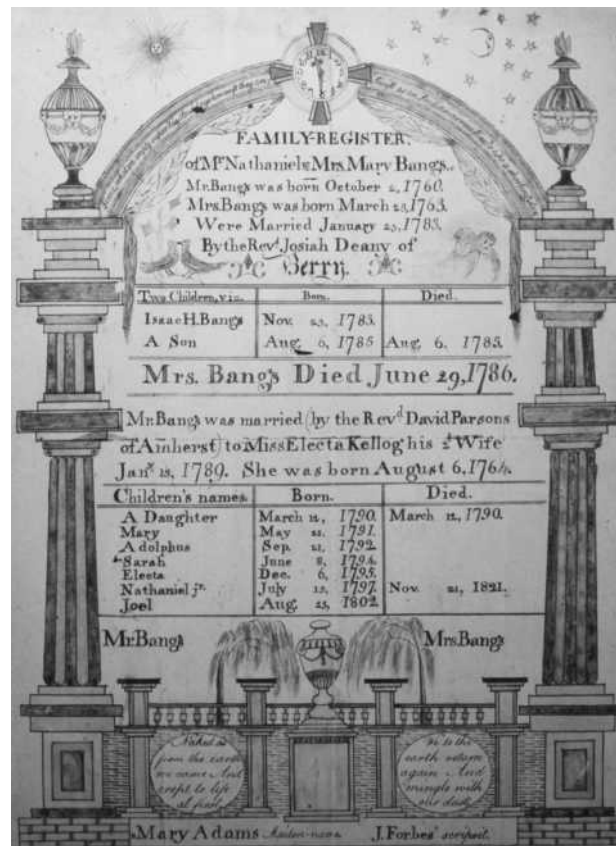 FAMILY-REGISTER,
of Mr Nathaniel & Mrs. Mary Bangs.
Mr. Bangs was born October 2, 1760.
Mrs. Bangs was born March 23, 1763.
Were Married January 23, 1783.
By the Revd. Josiah Deany of
Berry.
Two Children, viz. Born. Died.
Isaac H. Bangs Nov. 23, 1783.
A Son Aug. 6, 1785 Aug. 6, 1785.
Mrs. Bangs Died June 29, 1786.
Mr. Bangs was married (by the Revd David Parsons
of Amherst) to Miss Electa Kellog his 2d Wife
Jany. 13, 1789. She was born August 6, 1764.
Children's names. Born. Died.
A Daughter March 12, 1790. March 12, 1790.
Mary May 21, 1791.
Adolphus Sep. 21, 1792.
Sarah June 8, 1794.
Electa Dec. 6, 1795.
Nathaniel jr. July 13, 1797. Nov. 21, 1821.
Joel Aug. 23, 1802.
Mr. Bangs Mrs. Bangs
Naked as
from the earth
we came And
crept to life
at first
We to the
earth return
again And
mingle with
our dust
Mary Adams J. Forbes scripsit.